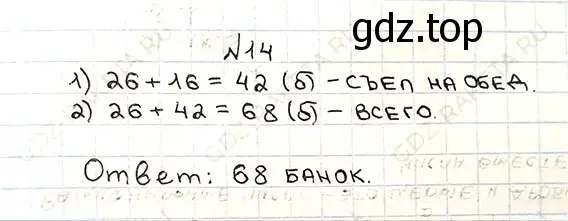 gdz.top
№14
1) 26 + 16 = 42 (б) - СЪЕЛ НА ОБЕД.
2) 26 + 42 = 68 (б) - ВСЕГО.
Ответ: 68 БАНОК.